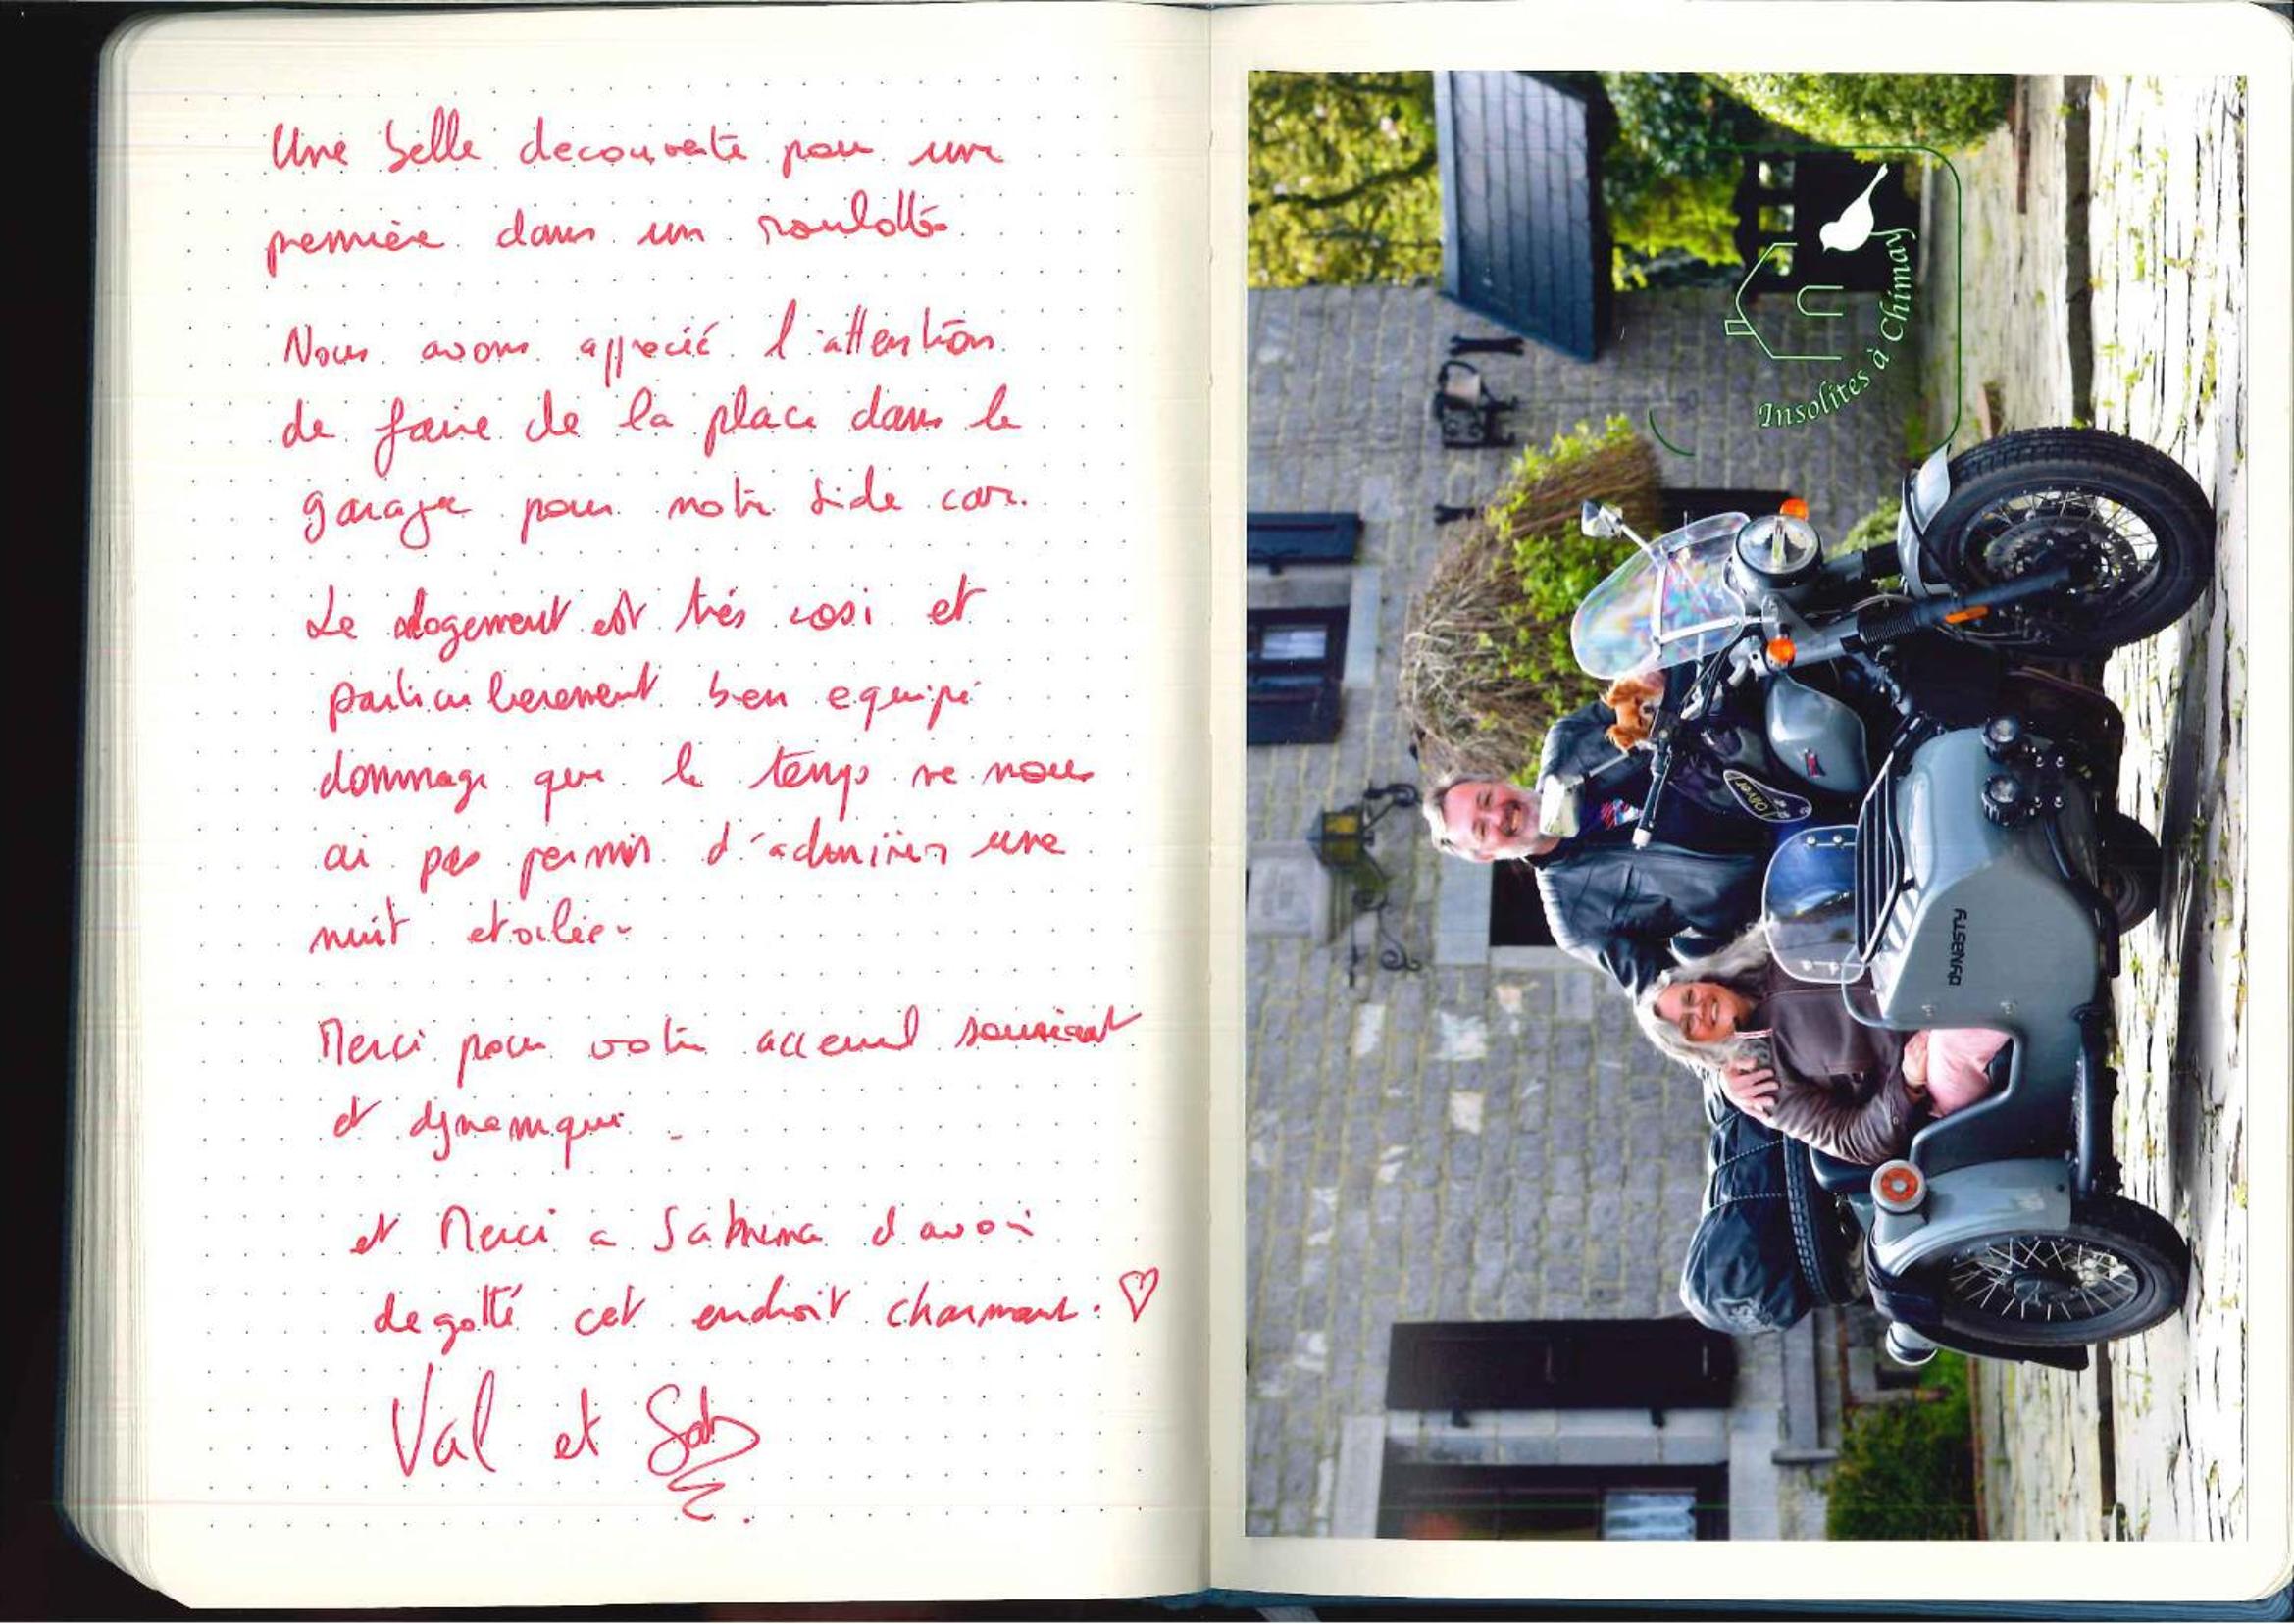 Une belle decouverte pour une
première dans un roulotté
Nous avons apprecié l'attention
de faire de la place dans le
garage pour notre side car.
Le logement est trés cosi et
particulierement bien equipé
dommage que le temps ne nous
ai pas permis d'admirer une
nuit etoilée.
Merci pour votre acceuil souriant
et dynamique.
et Merci a Sabrina d'avoir
degotté cet endroit charmant. ♡
Val et Sab
Insolites à Chimay
Oliver
DYNASTY